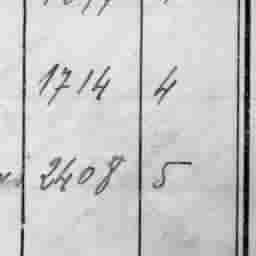 1714 4
2408 5